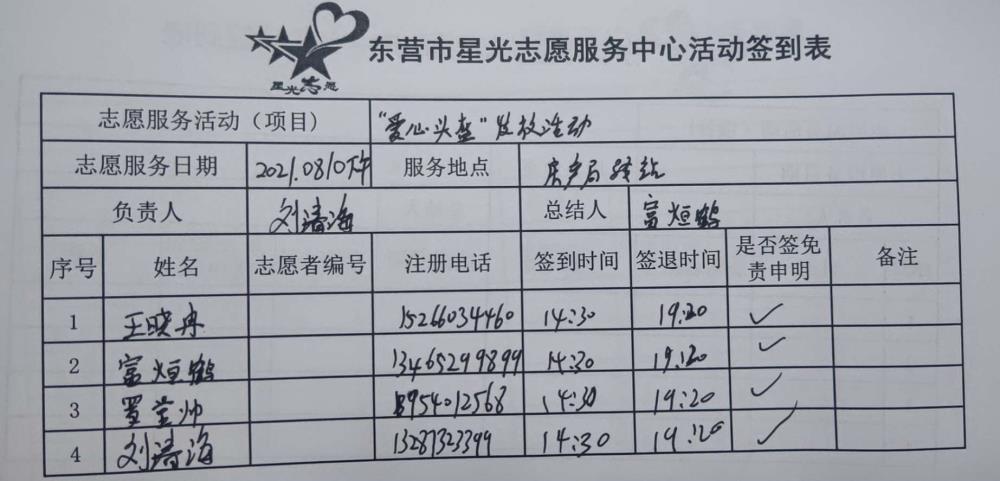 星光志愿
东营市星光志愿服务中心活动签到表
志愿服务活动（项目） "爱心头盔"发放活动
志愿服务日期 2021.0810下午 服务地点 房产局驿站
负责人 刘靖海 总结人 富烜鹤
序号 姓名 志愿者编号 注册电话 签到时间 签退时间 是否签免责申明 备注
1 王晓冉 15266034460 14:30 19:20 ✓
2 富烜鹤 13465299899 14:30 19:20 ✓
3 帅 18954012568 14:30 19:20 ✓
4 刘靖海 13287323399 14:30 19:20 ✓